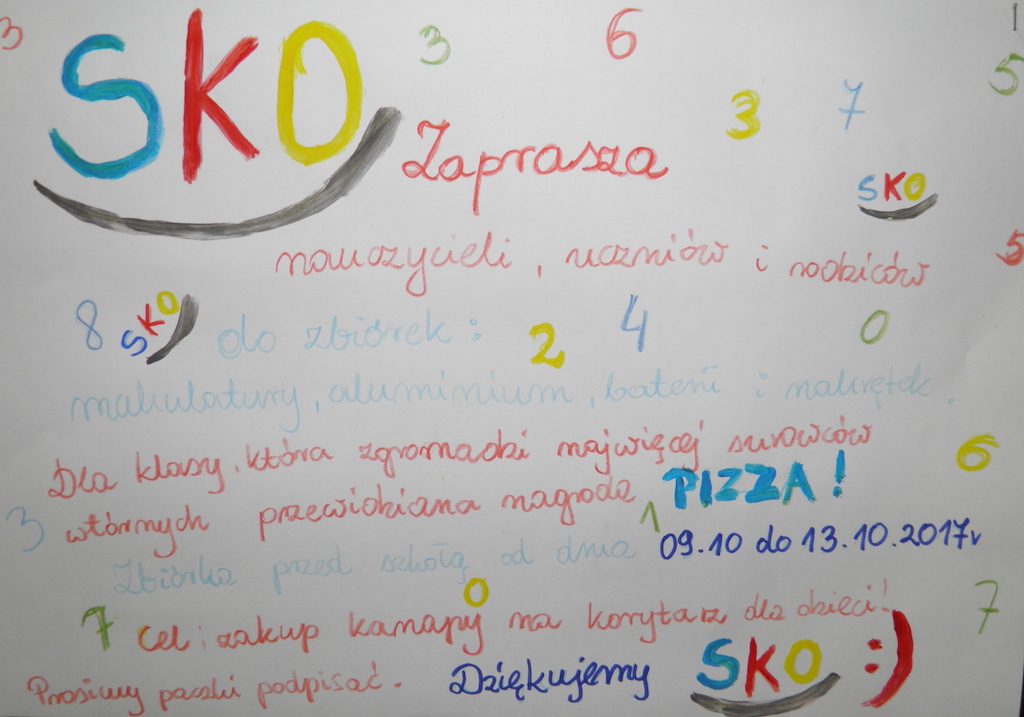 3 3 6 1
SKO
5
3 7
Zaprasza
SKO
nauczycieli, uczniów i rodziców 5
8 SKO do zbiórek: 2 4 0
makulatury, aluminium, baterii i nakrętek.
Dla klasy, która zgromadzi najwięcej surowców 6
3 wtórnych przewidziana nagroda PIZZA!
1
Zbiórka przed szkołą od dnia 09.10 do 13.10.2017r
0
7 Cel: zakup kanapy na korytarz dla dzieci! 7
Prosimy paczki podpisać. Dziękujemy SKO :)